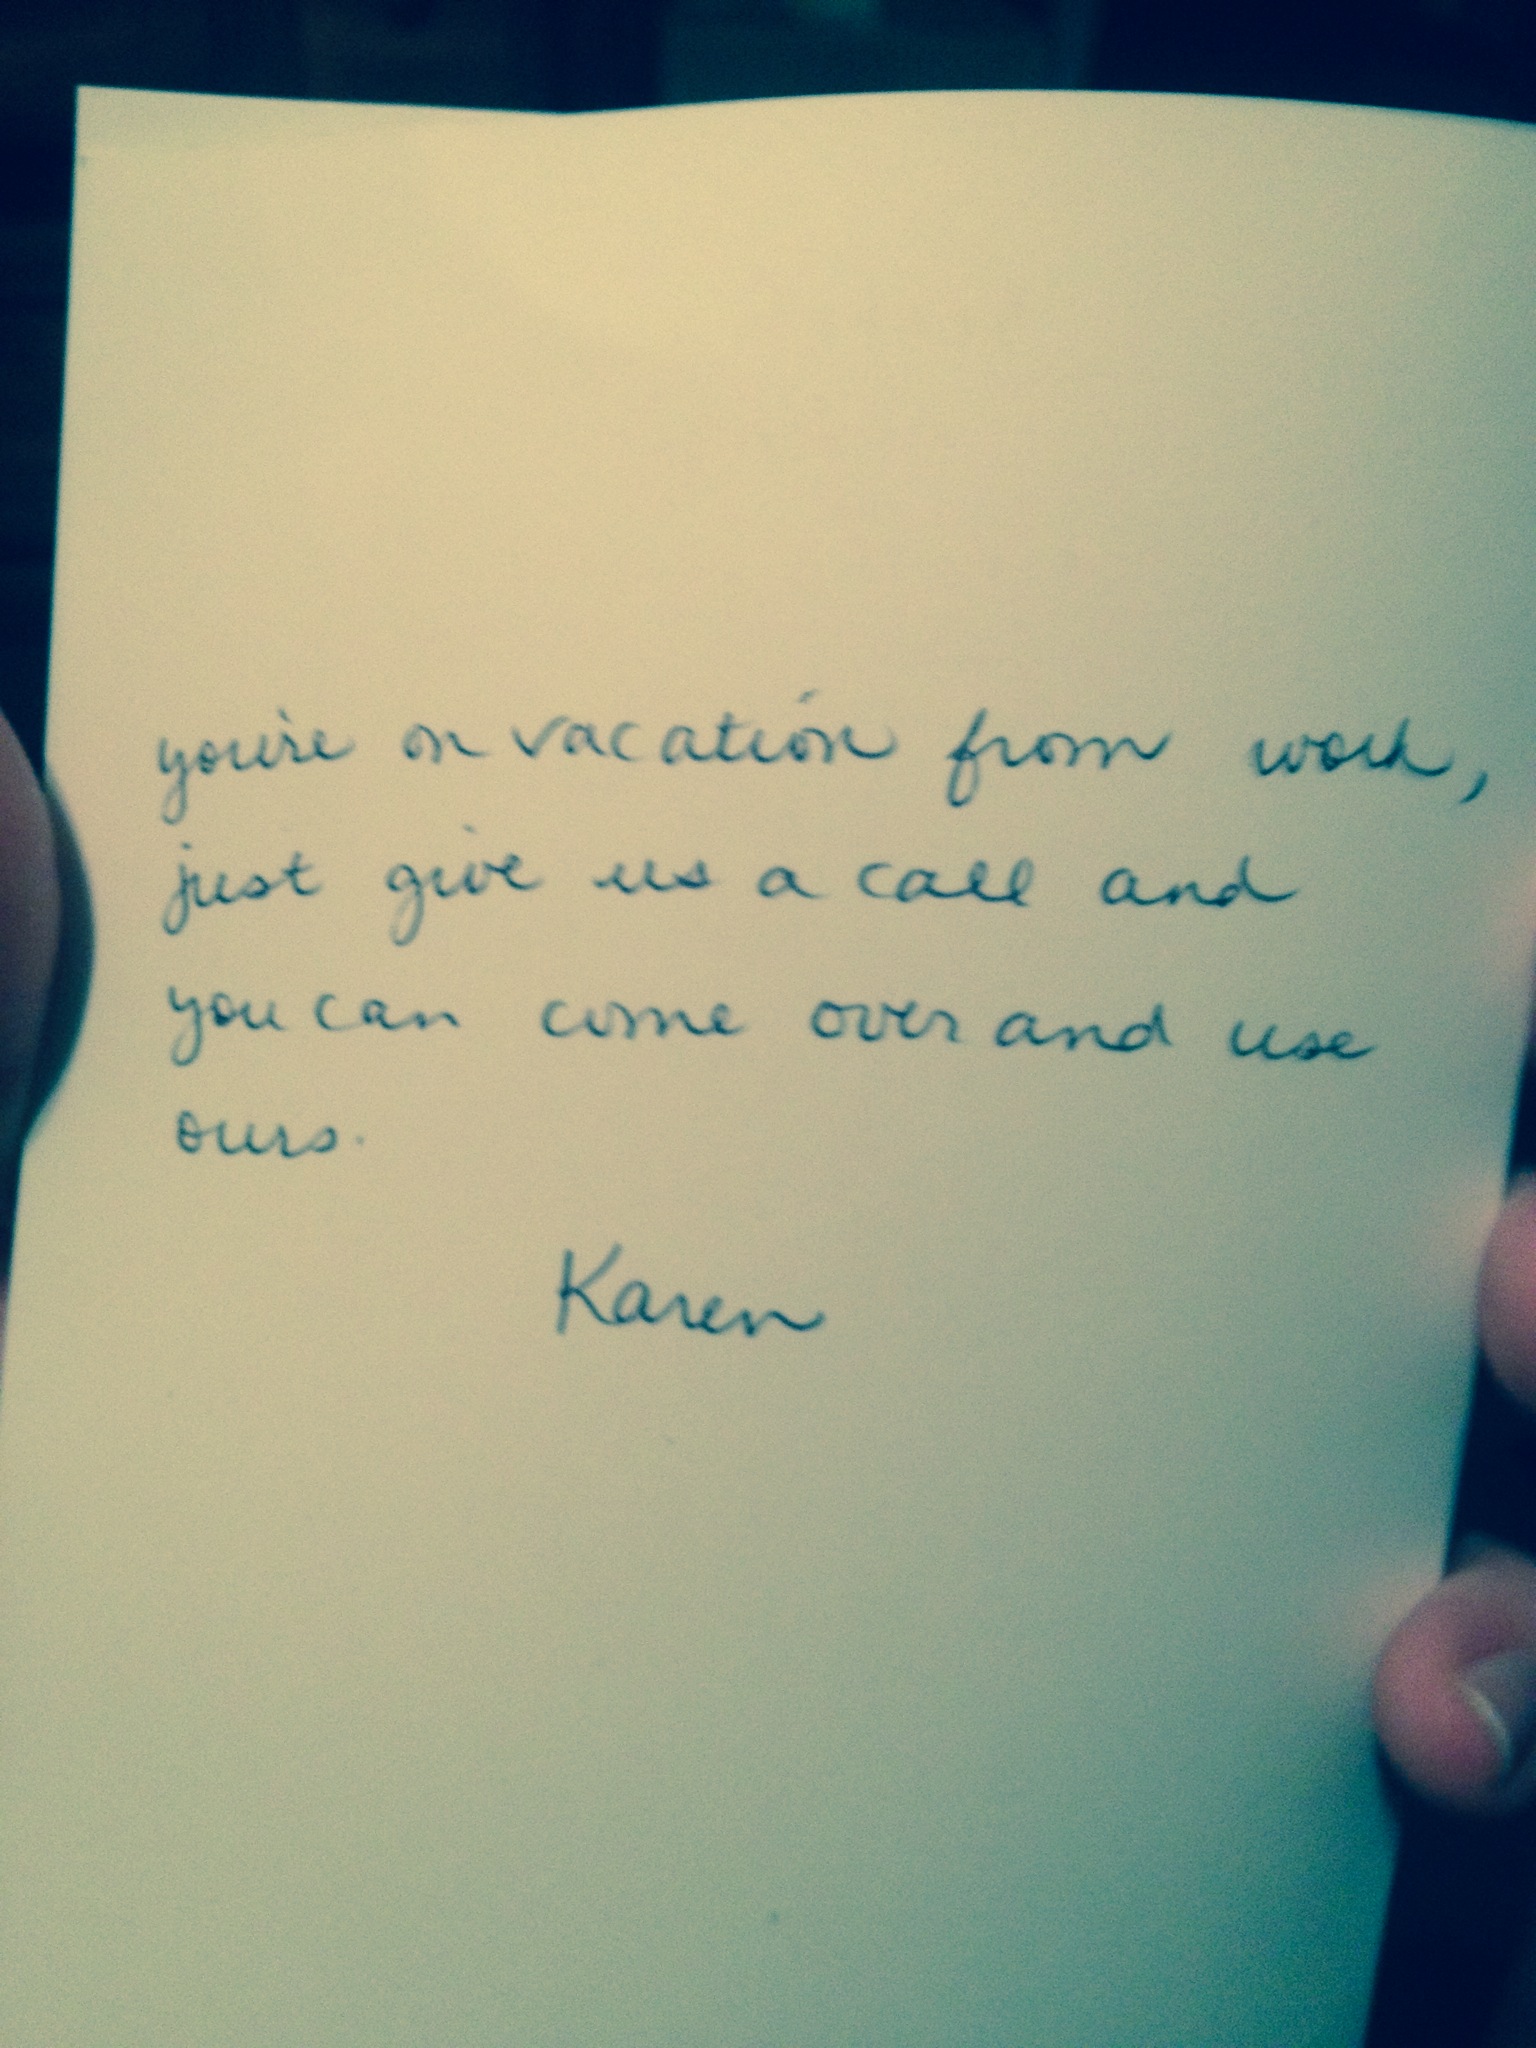 you're on vacation from work,
just give us a call and
you can come over and use
ours.
Karen